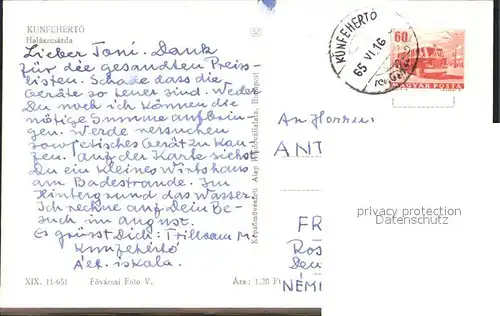 KUNFEHÉRTÓ
Halászcsárda
Lieber Toni. Dank
für die gesandten Preis-
listen. Schade dass die
Geräte so teuer sind. Weder
Du noch ich können die
nötige Summe aufbrin-
gen. Werde versuchen
sowjetisches Gerät zu kau-
fen. Auf der Karte siehst
Du ein kleines Wirtshaus
am Badestrande. Im
Hintergrund das Wasser.
Ich rechne auf Dein Be-
such im August.
Es grüsst Dich: M.
Kunfehértó
Ált. iskola.
XIX. 11-651 Fővárosi Foto V. Ára: 1.20 Ft
Képzőművészeti Alap Kiadóvállalata, Budapest
KUNFEHÉRTÓ
65 VI. 16
60f
MAGYAR POSTA
An Herren
ANT
FR
Ros
Deu
NÉMI
privacy protection
Datenschutz